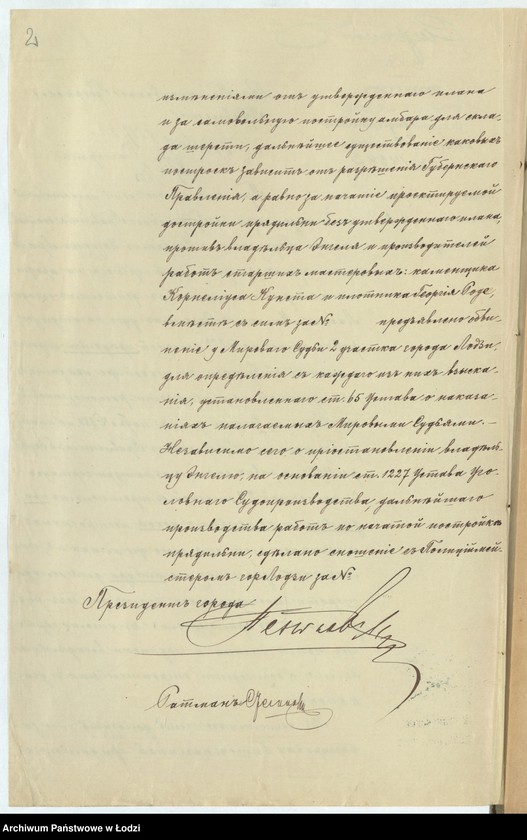 2
измѣненіями отъ утвержденнаго плана
и за самовольную постройку амбара для скла-
да шерсти, дальнѣйшее существованіе каковыхъ
построекъ зависитъ отъ разрѣшенія Губернскаго
Правленія, а равно за начатіе проектируемой
достройки прядильни безъ утвержденнаго плана,
противъ владѣльца Энгеля и производителей
работъ старшихъ мастеровыхъ: каменщика
Корнеліуса Кунста и плотника Георгія Розе,
вмѣстѣ съ симъ за № предъявлено обви-
неніе у Мироваго Судьи 2 участка города Лодзи,
для опредѣленія съ каждаго изъ нихъ взыска-
нія, установленнаго ст. 65 Устава о наказа-
ніяхъ налагаемыхъ Мировыми Судьями. —
Независимо сего о пріостановленіи владѣль-
цу Энгелю, на основаніи ст. 1227 Устава Уго-
ловнаго Судопроизводства, дальнѣйшаго
производства работъ по начатой постройкѣ
прядильни, сдѣлано сношеніе съ Полицмей-
стеромъ гор. Лодзи за №
Президентъ города
Ратманъ
Archiwum Państwowe w Łodzi